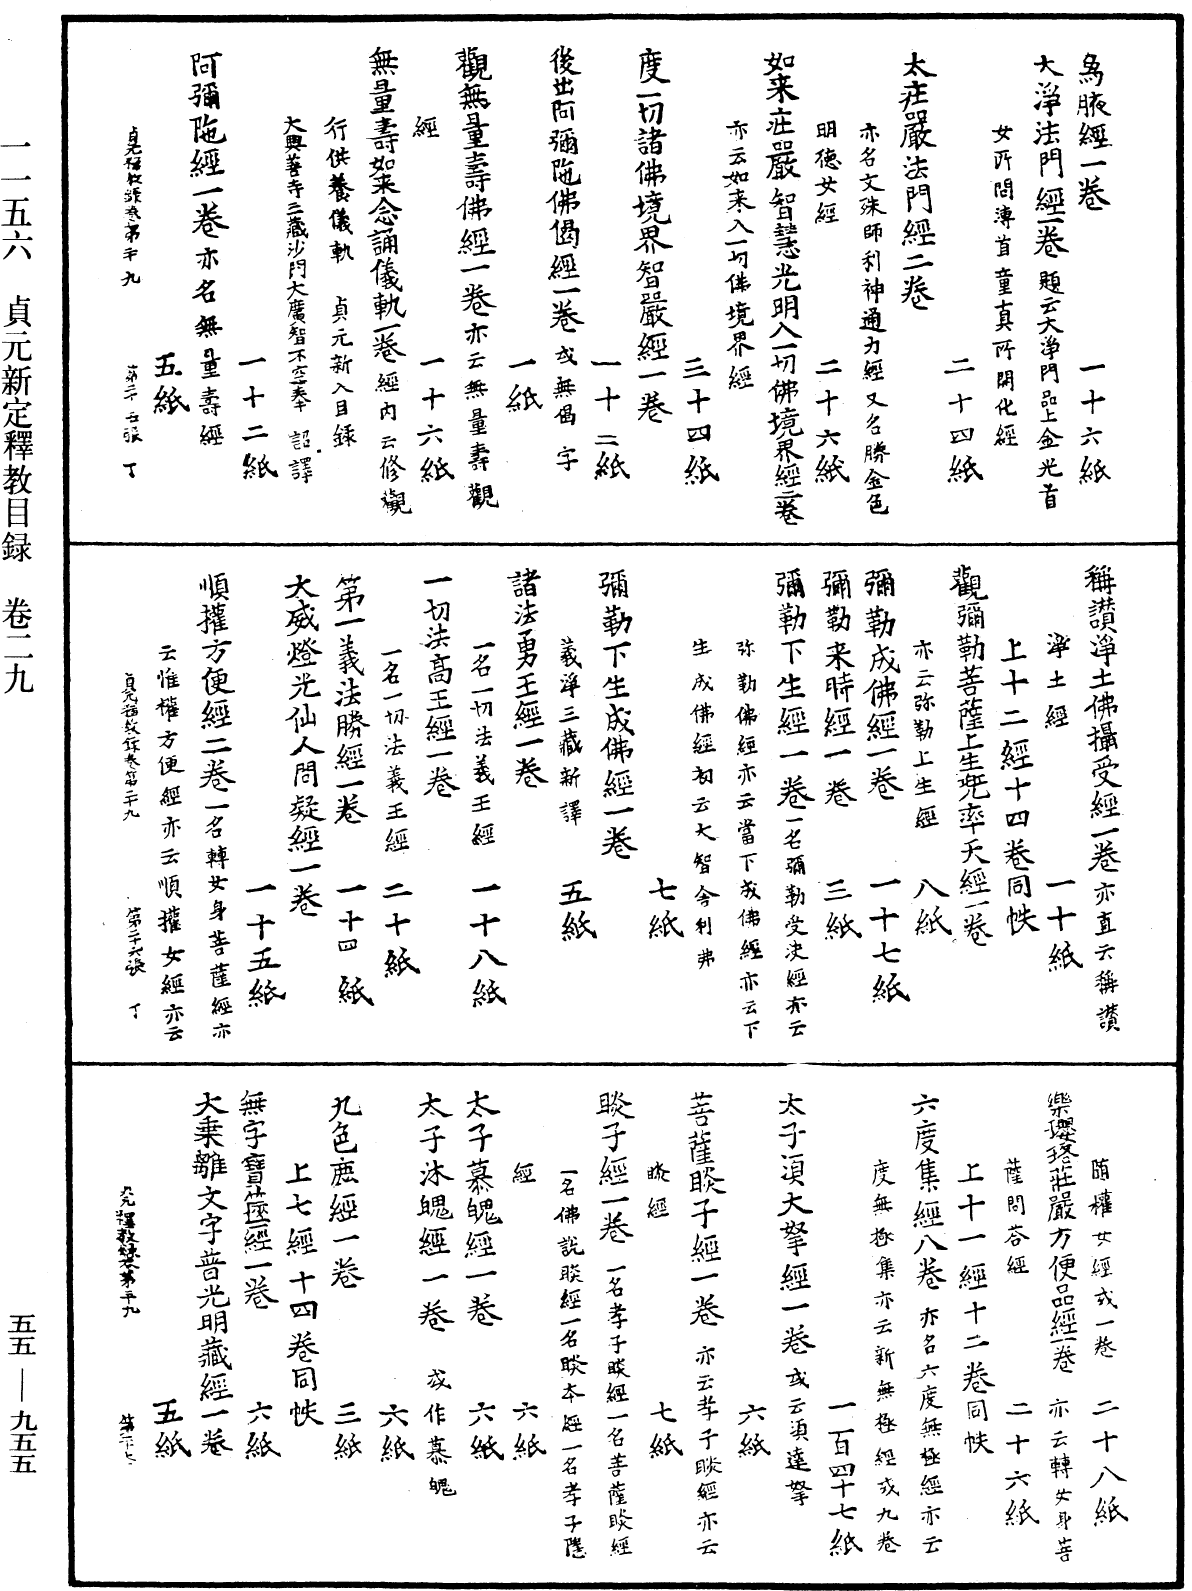 一一五六　貞元新定釋教目録　卷二九
五五—九五五
象腋經一卷　一十六紙
大淨法門經一卷 題云大淨門品上金光首
女所問溥首童真所開化經
二十四紙
太莊嚴法門經二卷
亦名文殊師利神通力經又名勝金色
明德女經　二十六紙
如来莊嚴智慧光明入一切佛境界經二卷
亦云如来入一切佛境界經
三十四紙
度一切諸佛境界智嚴經一卷
一十二紙
後出阿彌陁佛偈經一卷 或無偈字
一紙
觀無量壽佛經一卷 亦云無量壽觀
經　一十六紙
無量壽如来念誦儀軌一卷 經内云修觀
行供養儀軌　貞元新入目録
大興善寺三藏沙門大廣智不空奉 詔譯
一十二紙
阿彌陁經一卷 亦名無量壽經
五紙
貞元釋教録卷第二十九　第二十五張　丁
稱讃淨土佛攝受經一卷 亦直云稱讃
淨土經　一十紙
上十二經十四卷同帙
觀彌勒菩薩上生兜率天經一卷
亦云弥勒上生經　八紙
彌勒成佛經一卷　一十七紙
彌勒来時經一卷　三紙
彌勒下生經一卷 一名彌勒受决經亦云
弥勒佛經亦云當下成佛經亦云下
生成佛經初云大智舍利弗
七紙
彌勒下生成佛經一卷
義淨三藏新譯　五紙
諸法勇王經一卷
一名一切法義王經　一十八紙
一切法高王經一卷
一名一切法義王經　二十紙
第一義法勝經一卷　一十四紙
大威燈光仙人問疑經一卷
一十五紙
順權方便經二卷 一名轉女身菩薩經亦
云惟權方便經亦云順權女經亦云
貞元釋教録卷第二十九　第二十六張　丁
随權女經或一卷　二十八紙
樂瓔珞莊嚴方便品經一卷 亦云轉女身菩
薩問荅經　二十六紙
上十一經十二卷同帙
六度集經八卷 亦名六度無極經亦云
度無極集亦云新無極經或九卷
一百四十七紙
太子須大拏經一卷 或云須達拏
六紙
菩薩睒子經一卷 亦云孝子睒經亦云
睒經　七紙
睒子經一卷 一名孝子睒經一名菩薩睒經
一名佛說睒經一名睒本經一名孝子隱
經　六紙
太子慕魄經一卷　六紙
太子沐魄經一卷 或作慕魄
六紙
九色鹿經一卷　三紙
上七經十四卷同帙
無字寶篋經一卷　六紙
大乗離文字普光明藏經一卷
五紙
元釋教録卷第二十九　第二十七